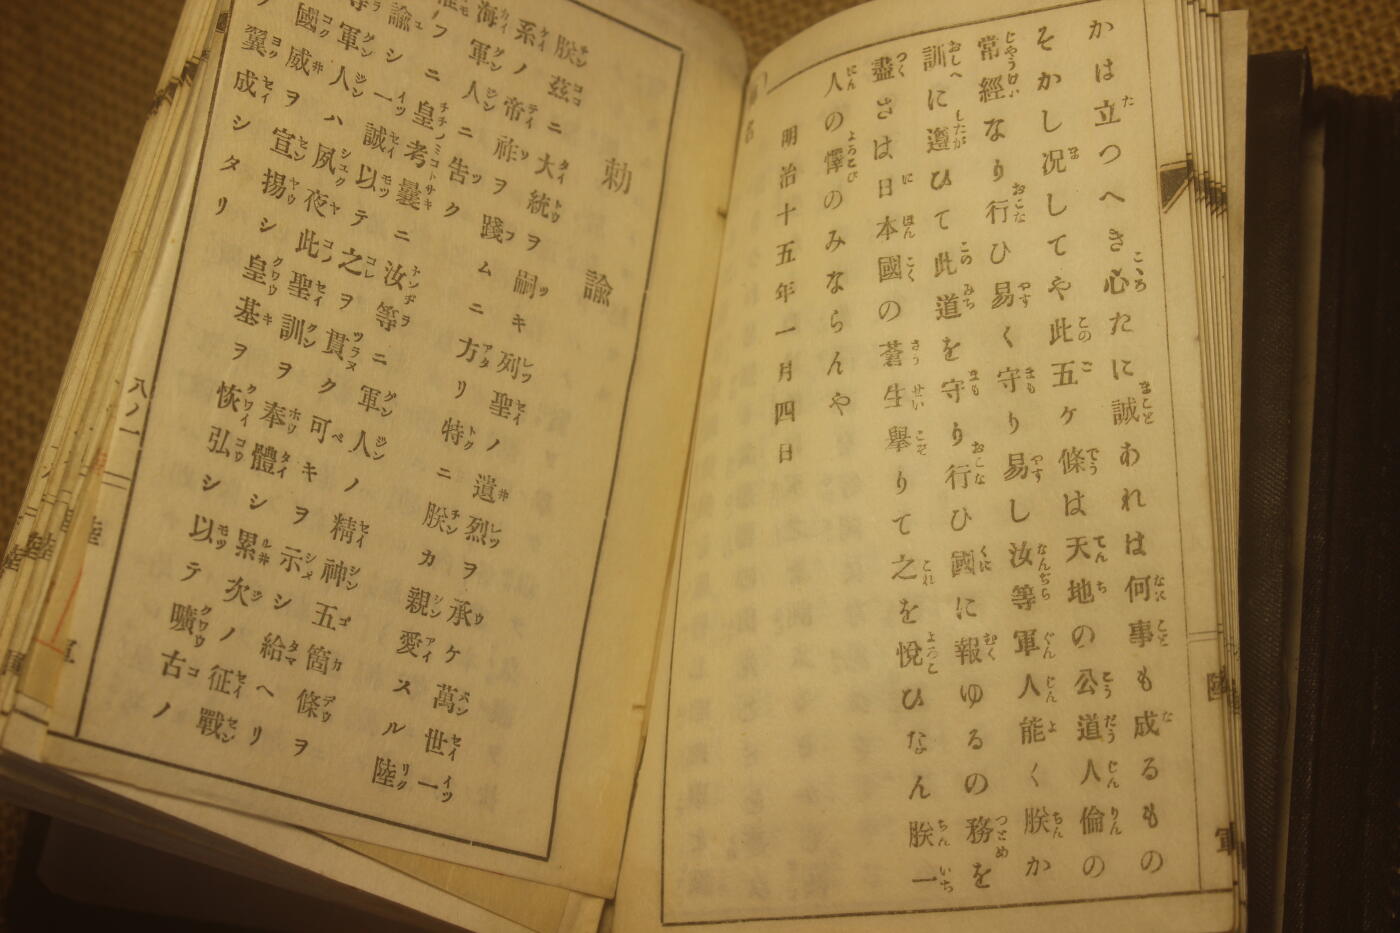 かは立つへき心たに誠あれは何事も成るもの
そかし況してや此五ケ條は天地の公道人倫の
常經なり行ひ易く守り易し汝等軍人能く朕か
訓に遵ひて此道を守り行ひ國に報ゆるの務を
盡さは日本國の蒼生擧りて之を悅ひなん朕一
人の懌のみならんや
明治十五年一月四日
勅諭
朕玆ニ大統ヲ嗣キ列聖ノ遺烈ヲ承ケ萬世一
系ノ帝祚ヲ踐ムニ方リ特ニ朕カ親愛スル陸
海軍人ニ告ク
フニ皇考曩ニ汝等ニ軍人ノ精神五箇條ヲ
諭シ一誠以テ之ヲ貫ク可キヲ示シ給ヘリ
軍人ハ夙夜此聖訓ヲ奉體シ累次ノ征戰
國威ヲ宣揚シ皇基ヲ恢弘シ以テ曠古ノ
翼成シタリ
八ノ一
陸
軍
陸
軍